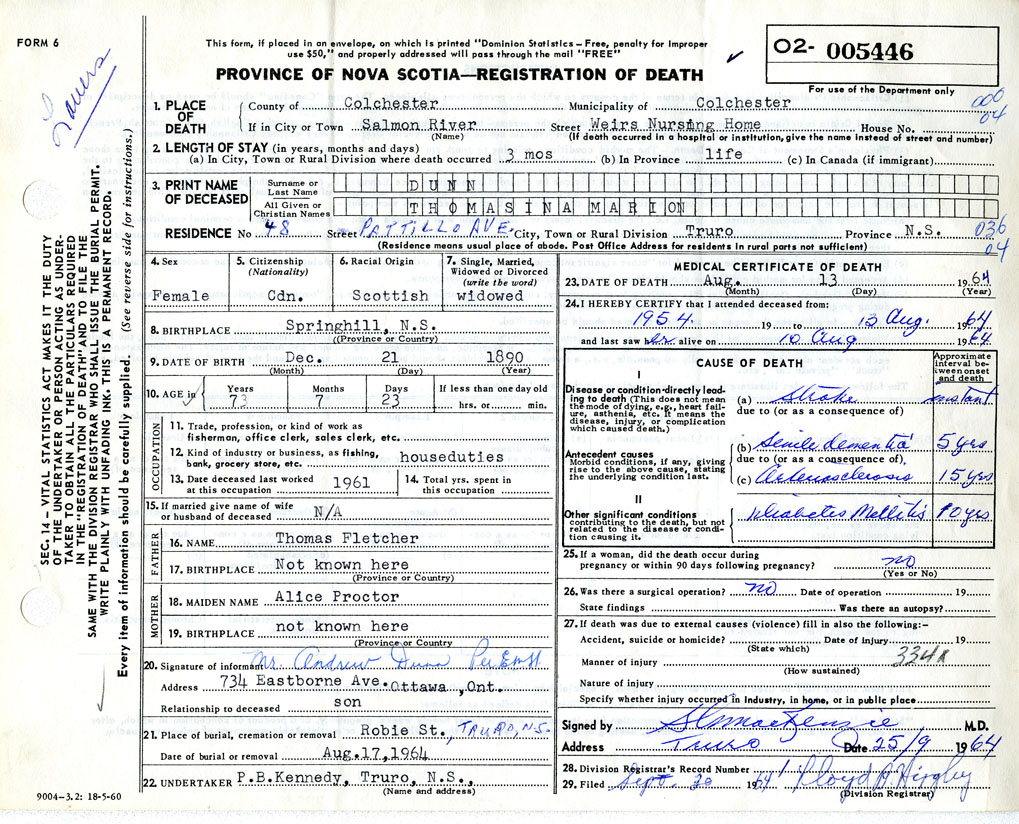 FORM 6
This form, if placed in an envelope, on which is printed "Dominion Statistics – Free, penalty for improper
use $50," and properly addressed will pass through the mail "FREE"
PROVINCE OF NOVA SCOTIA—REGISTRATION OF DEATH
02- 005446
For use of the Department only
SEC. 14 – VITAL STATISTICS ACT MAKES IT THE DUTY
OF THE UNDERTAKER OR PERSON ACTING AS UNDER-
TAKER TO OBTAIN THE PARTICULARS REQUIRED
IN THE "REGISTRATION OF DEATH" AND TO FILE THE
SAME WITH THE DIVISION REGISTRAR WHO SHALL ISSUE THE BURIAL PERMIT.
WRITE PLAINLY WITH UNFADING INK. THIS IS A PERMANENT RECORD.
Every item of information should be carefully supplied. (See reverse side for instructions.)
1. PLACE OF DEATH
County of Colchester Municipality of Colchester 000
If in City or Town Salmon River Street Weirs Nursing Home House No. 04
(Name) (If death occurred in a hospital or institution, give the name instead of street and number)
2. LENGTH OF STAY (in years, months and days)
(a) In City, Town or Rural Division where death occurred 3 mos (b) In Province life (c) In Canada (if immigrant)
3. PRINT NAME OF DECEASED
Surname or Last Name DUNN
All Given or Christian Names THOMASINA MARION
RESIDENCE No. 48 Street PATTILLO AVE. City, Town or Rural Division Truro Province N.S. 036
04
(Residence means usual place of abode. Post Office Address for residents in rural parts not sufficient)
4. Sex
Female
5. Citizenship
(Nationality)
Cdn.
6. Racial Origin
Scottish
7. Single, Married,
Widowed or Divorced
(write the word)
widowed
8. BIRTHPLACE Springhill, N.S.
(Province or Country)
9. DATE OF BIRTH Dec. 21 1890
(Month) (Day) (Year)
10. AGE in Years Months Days If less than one day old
73 7 23 hrs. or min.
OCCUPATION
11. Trade, profession, or kind of work as
fisherman, office clerk, sales clerk, etc.
12. Kind of industry or business, as fishing,
bank, grocery store, etc. houseduties
13. Date deceased last worked
at this occupation 1961
14. Total yrs. spent in
this occupation
15. If married give name of wife
or husband of deceased N/A
FATHER
16. NAME Thomas Fletcher
17. BIRTHPLACE Not known here
(Province or Country)
MOTHER
18. MAIDEN NAME Alice Proctor
19. BIRTHPLACE not known here
(Province or Country
20. Signature of informant Mr. Andrew Dunn Per
Address 734 Eastborne Ave. Ottawa, Ont.
Relationship to deceased son
21. Place of burial, cremation or removal Robie St., TRURO, N.S.
Date of burial or removal Aug.17,1964
22. UNDERTAKER P.B.Kennedy, Truro, N.S.,
(Name and address)
9004–3.2: 18-5-60
MEDICAL CERTIFICATE OF DEATH
23. DATE OF DEATH Aug. 13 1964
(Month) (Day) (Year)
24. I HEREBY CERTIFY that I attended deceased from:
1954. 19 to 13 Aug. 1964
and last saw her alive on 10 Aug 1964
CAUSE OF DEATH
Approximate
interval be-
tween onset
and death
I
Disease or condition directly lead-
ing to death (This does not mean
the mode of dying, e.g., heart fail-
ure, asthenia, etc. It means the
disease, injury, or complication
which caused death.)
(a) Stroke instant
due to (or as a consequence of)
Antecedent causes
Morbid conditions, if any, giving
rise to the above cause, stating
the underlying condition last.
(b) Senile dementia 5 yrs
due to (or as a consequence of)
(c) Arteriosclerosis 15 yrs
II
Other significant conditions
contributing to the death, but not
related to the disease or condi-
tion causing it.
Diabetes Mellitis 10 yrs
25. If a woman, did the death occur during
pregnancy or within 90 days following pregnancy? no
(Yes or No)
26. Was there a surgical operation? no Date of operation 19
State findings Was there an autopsy?
27. If death was due to external causes (violence) fill in also the following:–
Accident, suicide or homicide? Date of injury 19
(State which)
Manner of injury
(How sustained)
Nature of injury
Specify whether injury occurred in industry, in home, or in public place
Signed by M.D.
Address Truro Date 25/9 1964
28. Division Registrar's Record Number
29. Filed Sept. 30 1964 Lloyd
(Division Registrar)